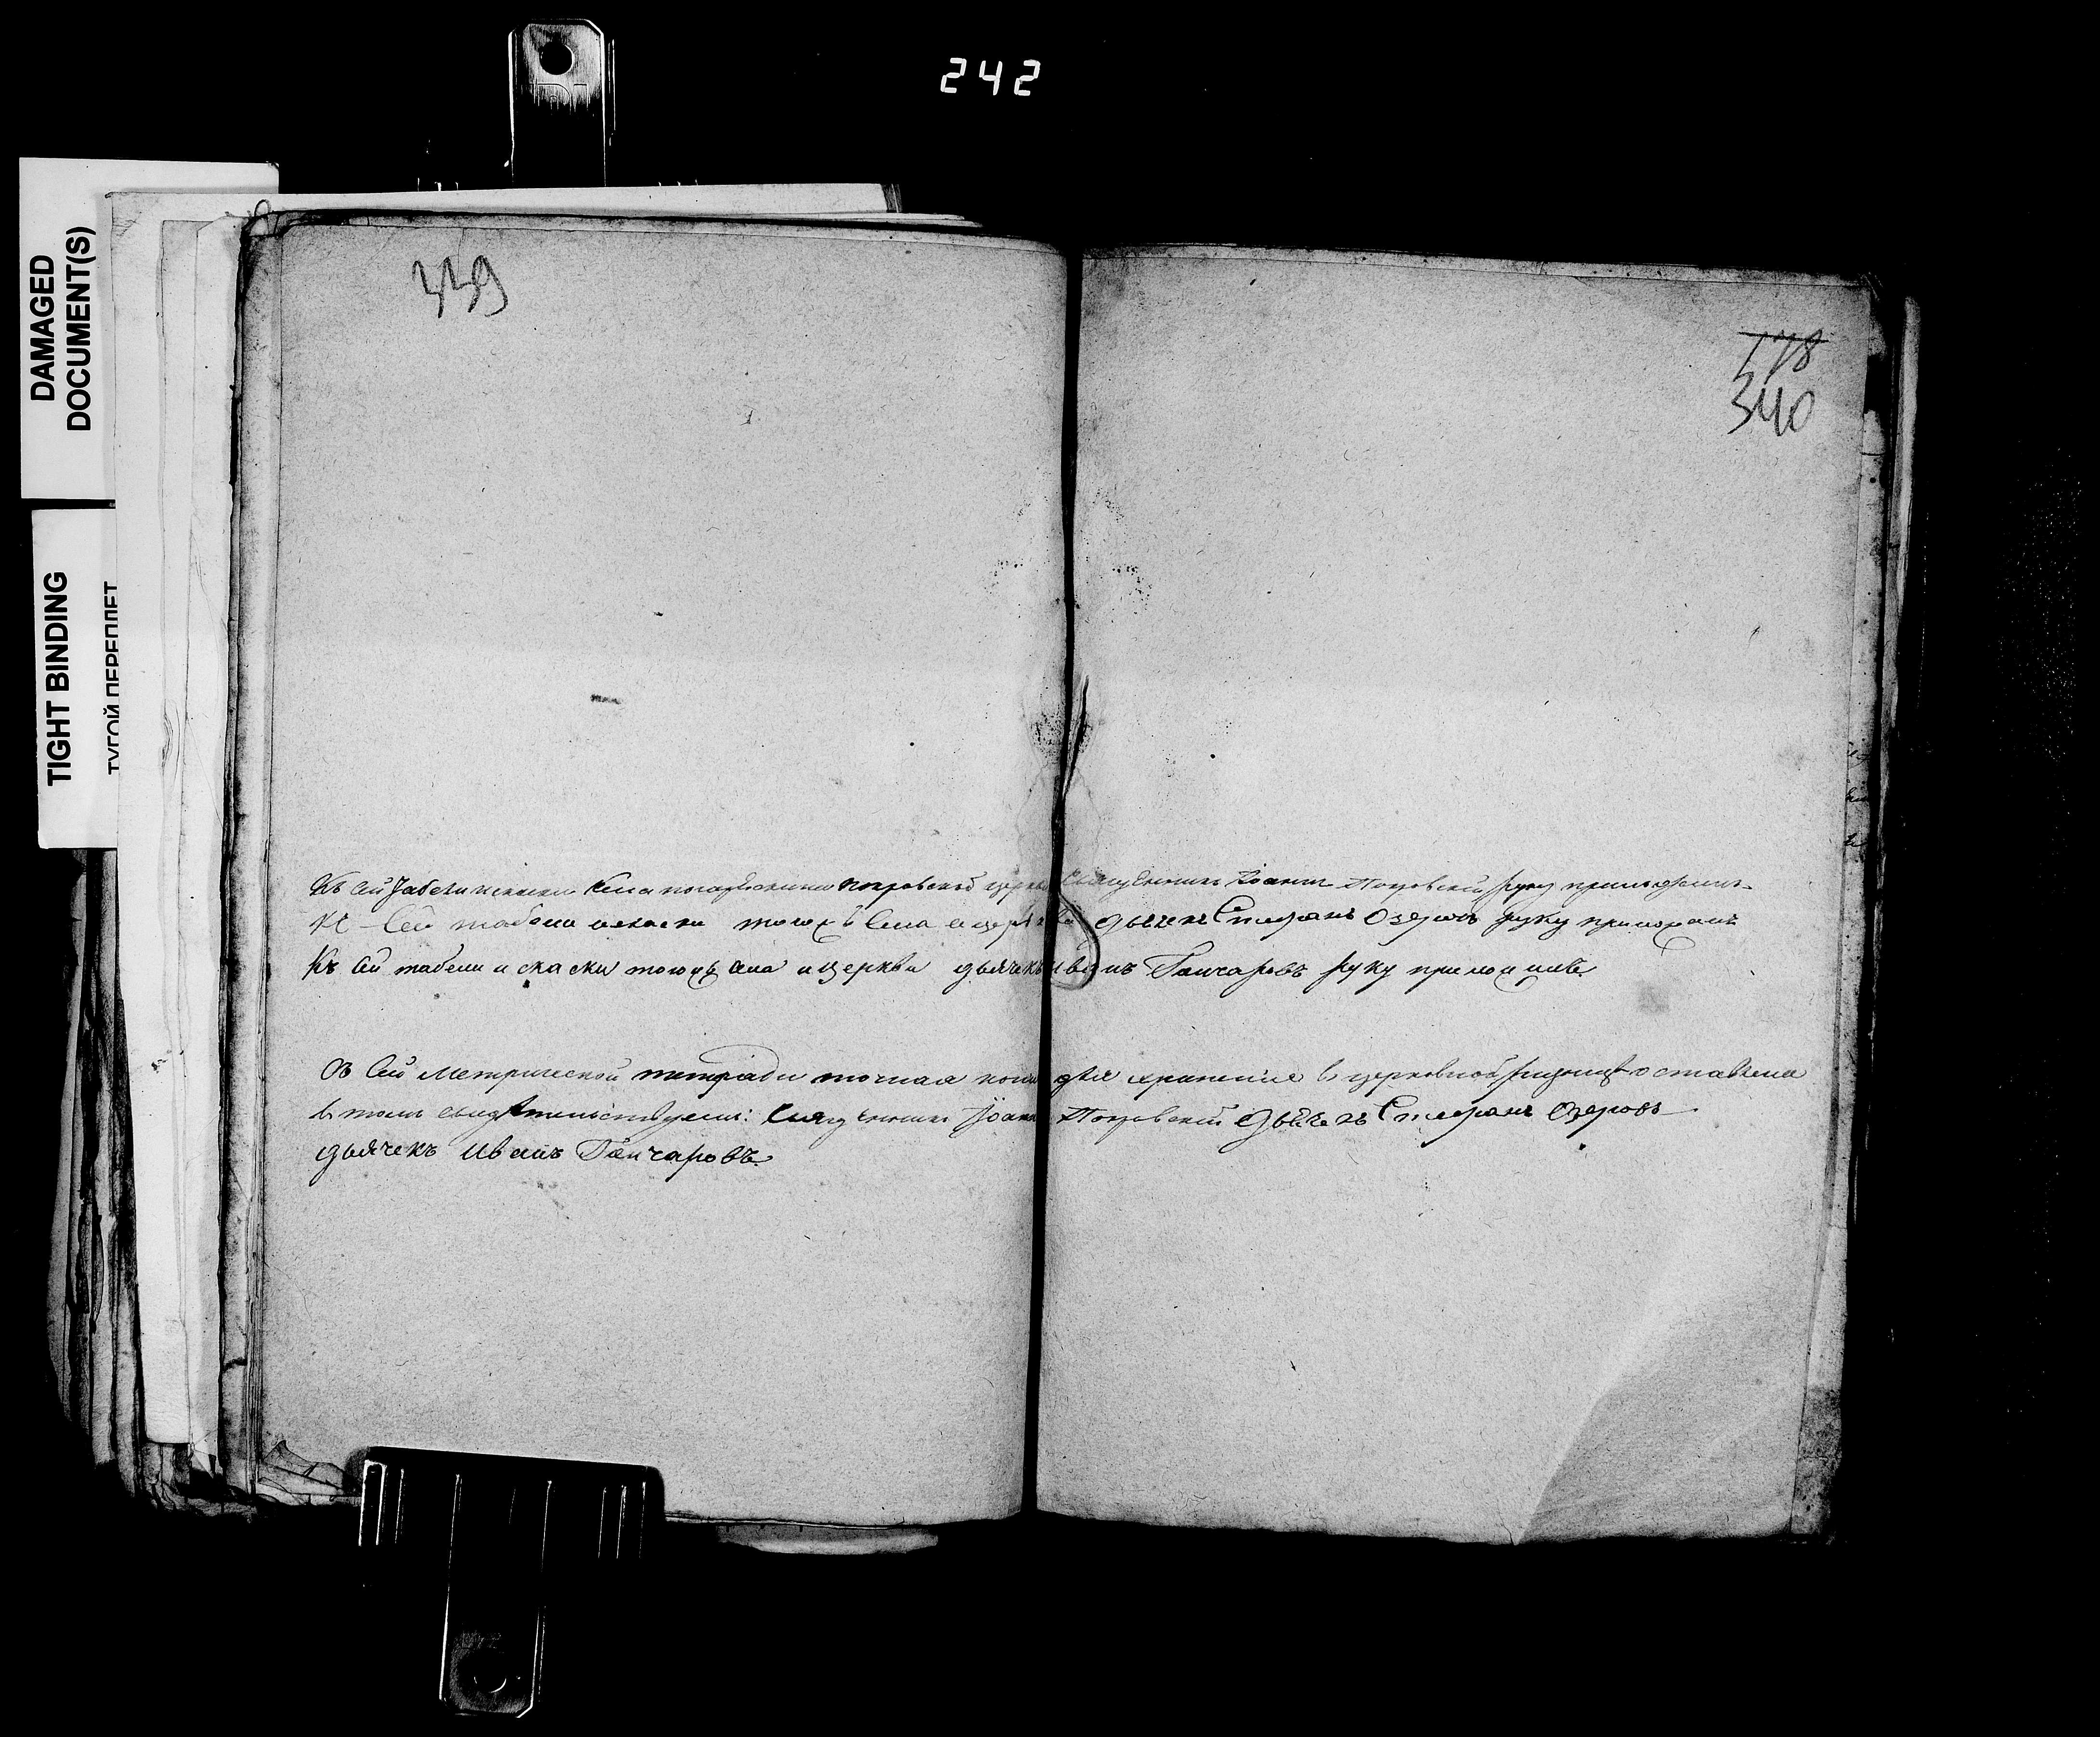 242
DAMAGED
DOCUMENT(S)
TIGHT BINDING
ТУГОЙ ПЕРЕПЛЕТ
339
178
340
Къ сей табели и скаски села Покровской церкви Священникъ Іоаннъ Покровскій руку приложилъ
Къ сей табели и скаски тогожъ села и церкви дьячекъ Стефанъ Озеровъ руку приложилъ
Къ сей табели и скаски тогожъ села и церкви дьячекъ Иванъ Гончаровъ руку приложилъ
Съ сей метрической тетради точная копія для храненія въ церковной ризницѣ оставлена
въ томъ свидѣтельствуемъ: Священникъ Іоаннъ Покровскій Дьячекъ Стефанъ Озеровъ
дьячекъ Иванъ Гончаровъ